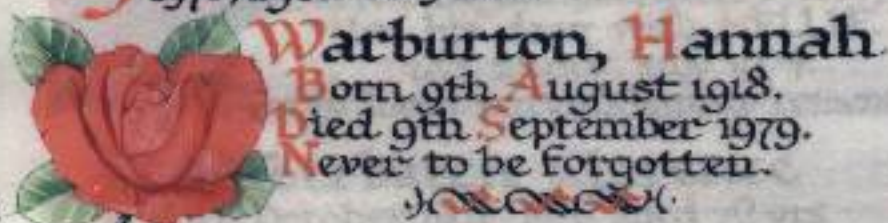 Warburton, Hannah
Born 9th August 1918.
Died 9th September 1979.
Never to be forgotten.